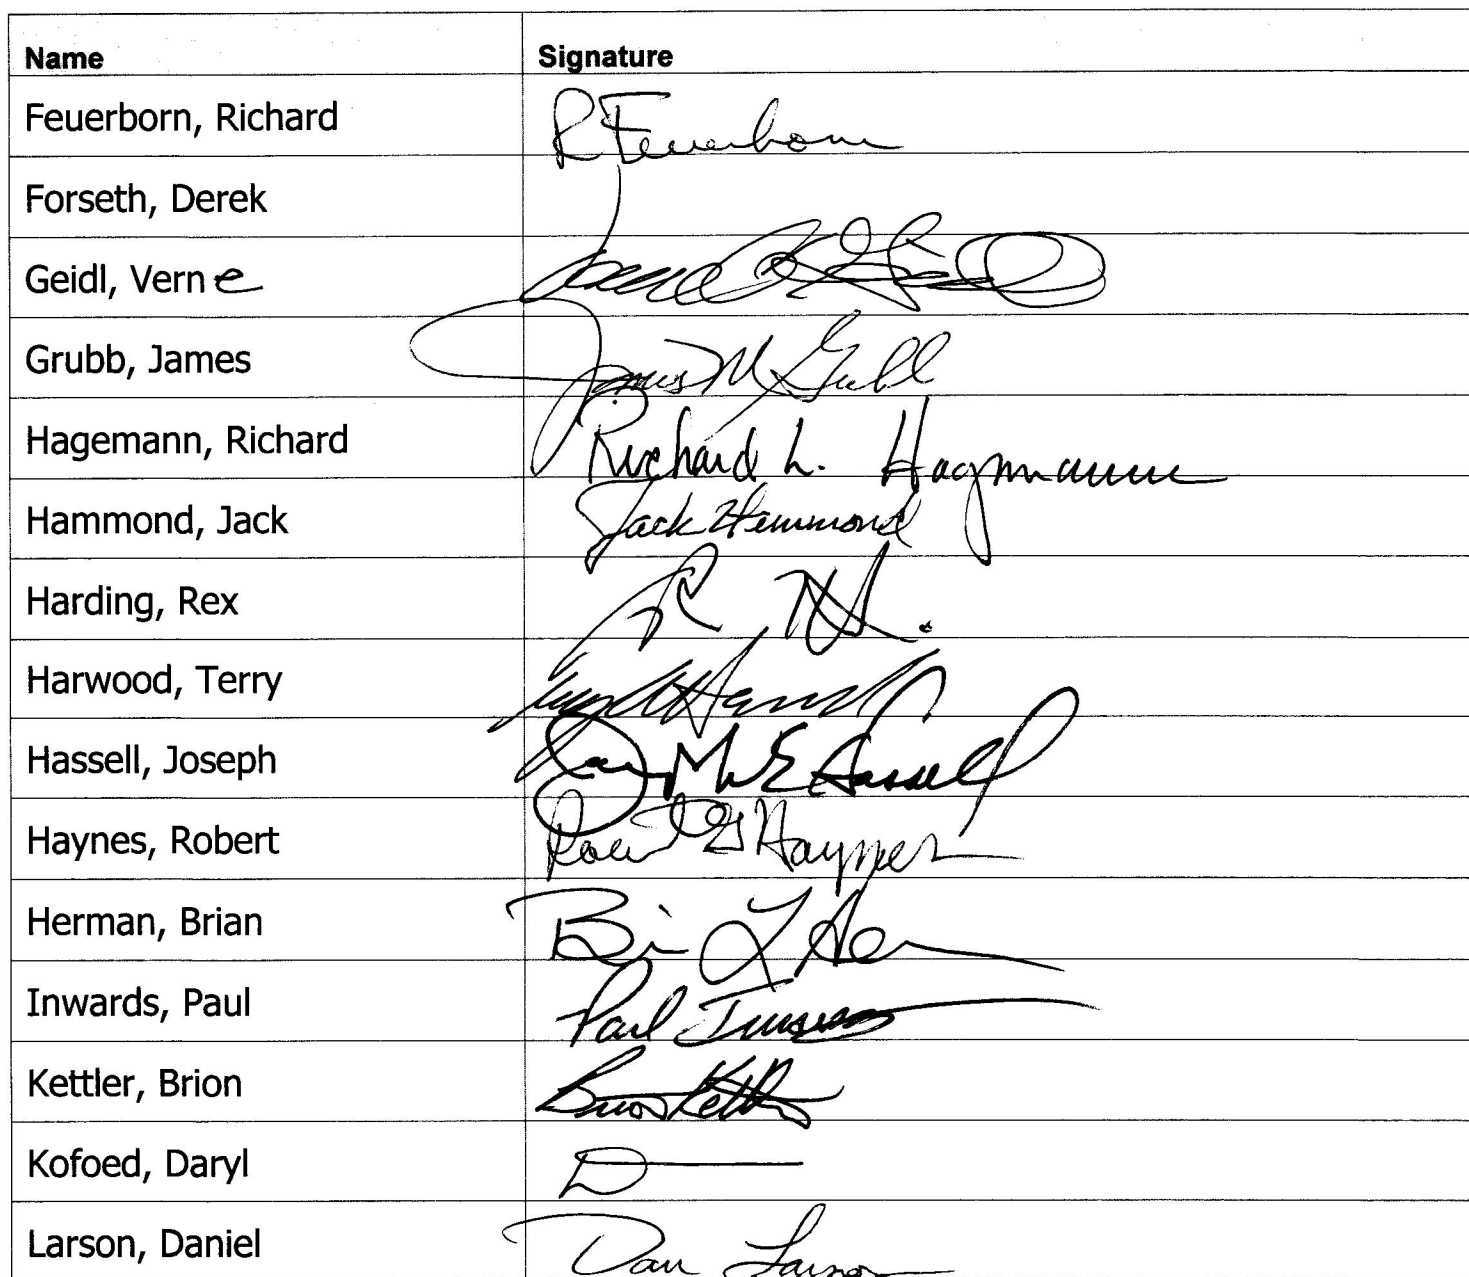 Name Signature
Feuerborn, Richard R Feuerborn
Forseth, Derek
Geidl, Verne
Grubb, James James M Grubb
Hagemann, Richard Richard L. Hagmann
Hammond, Jack Jack Hammond
Harding, Rex R H.
Harwood, Terry
Hassell, Joseph Hassell
Haynes, Robert Robert G Haynes
Herman, Brian Bri L He
Inwards, Paul Paul Inwards
Kettler, Brion Brion Kettler
Kofoed, Daryl D
Larson, Daniel Dan Larson